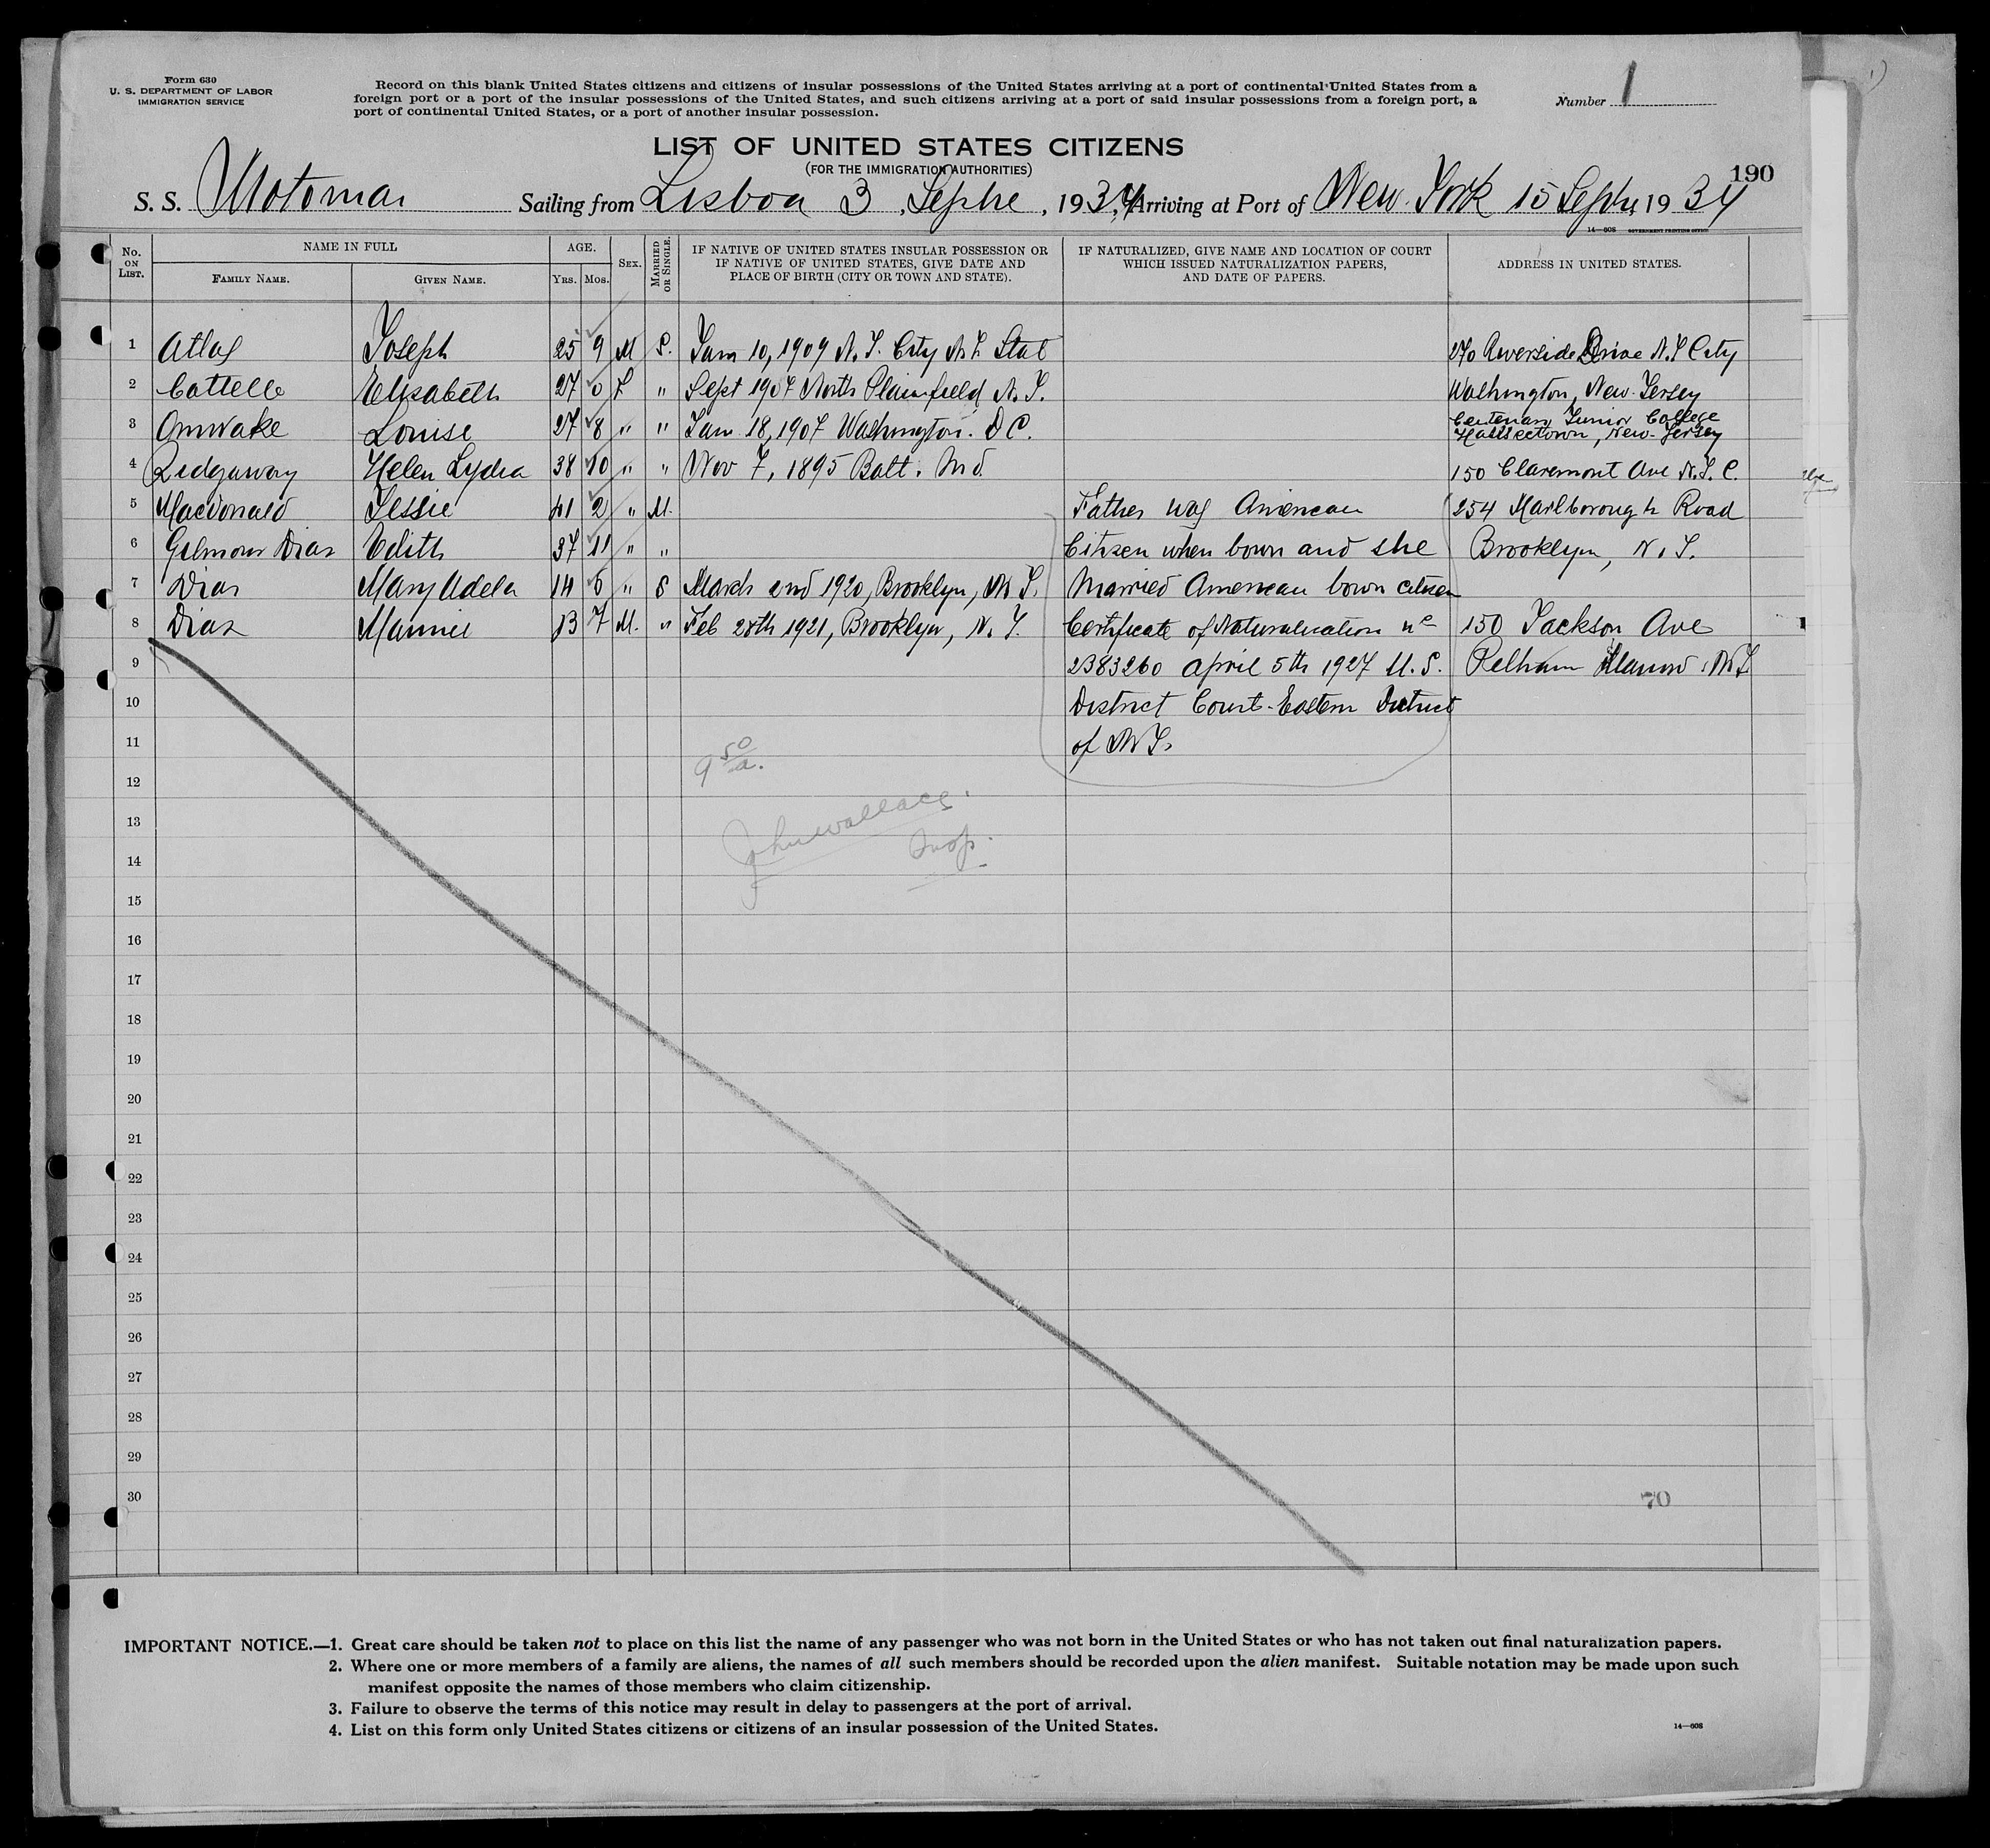 Form 630
U. S. DEPARTMENT OF LABOR
IMMIGRATION SERVICE
Record on this blank United States citizens and citizens of insular possessions of the United States arriving at a port of continental United States from a
foreign port or a port of the insular possessions of the United States, and such citizens arriving at a port of said insular possessions from a foreign port, a
port of continental United States, or a port of another insular possession.
Number 1
LIST OF UNITED STATES CITIZENS
(FOR THE IMMIGRATION AUTHORITIES)
190
S. S. Motomar Sailing from Lisboa 3 Septre, 1934, Arriving at Port of New York 15 Septre, 1934
14—608 GOVERNMENT PRINTING OFFICE
No. ON LIST. NAME IN FULL FAMILY NAME. GIVEN NAME. AGE. YRS. MOS. SEX. MARRIED OR SINGLE. IF NATIVE OF UNITED STATES INSULAR POSSESSION OR IF NATIVE OF UNITED STATES, GIVE DATE AND PLACE OF BIRTH (CITY OR TOWN AND STATE). IF NATURALIZED, GIVE NAME AND LOCATION OF COURT WHICH ISSUED NATURALIZATION PAPERS, AND DATE OF PAPERS. ADDRESS IN UNITED STATES.
1 Atlas Joseph 25 9 M S. Jan 10, 1909 N. Y. City N.Y. Stat 270 Riverside Drive N.Y City
2 Cattell Elisabeth 27 0 F " Sept 1907 North Plainfield N. J. Washington, New-Jersey
3 Omwake Louise 27 8 " " Jan 18, 1907 Washington. D C. Centenary Junior College
Hackettstown, New-Jersey
4 Ridgway Helen Lydia 38 10 " " Nov 7, 1895 Balt. Md. 150 Claremont Ave N.Y.C.
5 MacDonald Jessie 41 2 " M. Father was American 254 Marlborough Road
6 Gilmour Dias Edith 37 11 " " Citizen when born and she Brooklyn, N.Y.
7 Dias Mary Adela 14 6 " S March 2nd 1920, Brooklyn, N Y. Married American born citizen
8 Dias Mannie 13 7 M. " Feb 28th 1921, Brooklyn, N. Y. Certificate of Naturalisation nº 150 Jackson Ave
9 2383260 April 5th 1927 U. S. Pelham Manor N.Y
10 District Court-Eastern District
11 of N Y.
9 50 a.
12
John Wallace.
13
Insp.
14
15
16
17
18
19
20
21
22
23
24
25
26
27
28
29
30
70
IMPORTANT NOTICE.—1. Great care should be taken not to place on this list the name of any passenger who was not born in the United States or who has not taken out final naturalization papers.
2. Where one or more members of a family are aliens, the names of all such members should be recorded upon the alien manifest. Suitable notation may be made upon such
manifest opposite the names of those members who claim citizenship.
3. Failure to observe the terms of this notice may result in delay to passengers at the port of arrival.
4. List on this form only United States citizens or citizens of an insular possession of the United States.
14—608